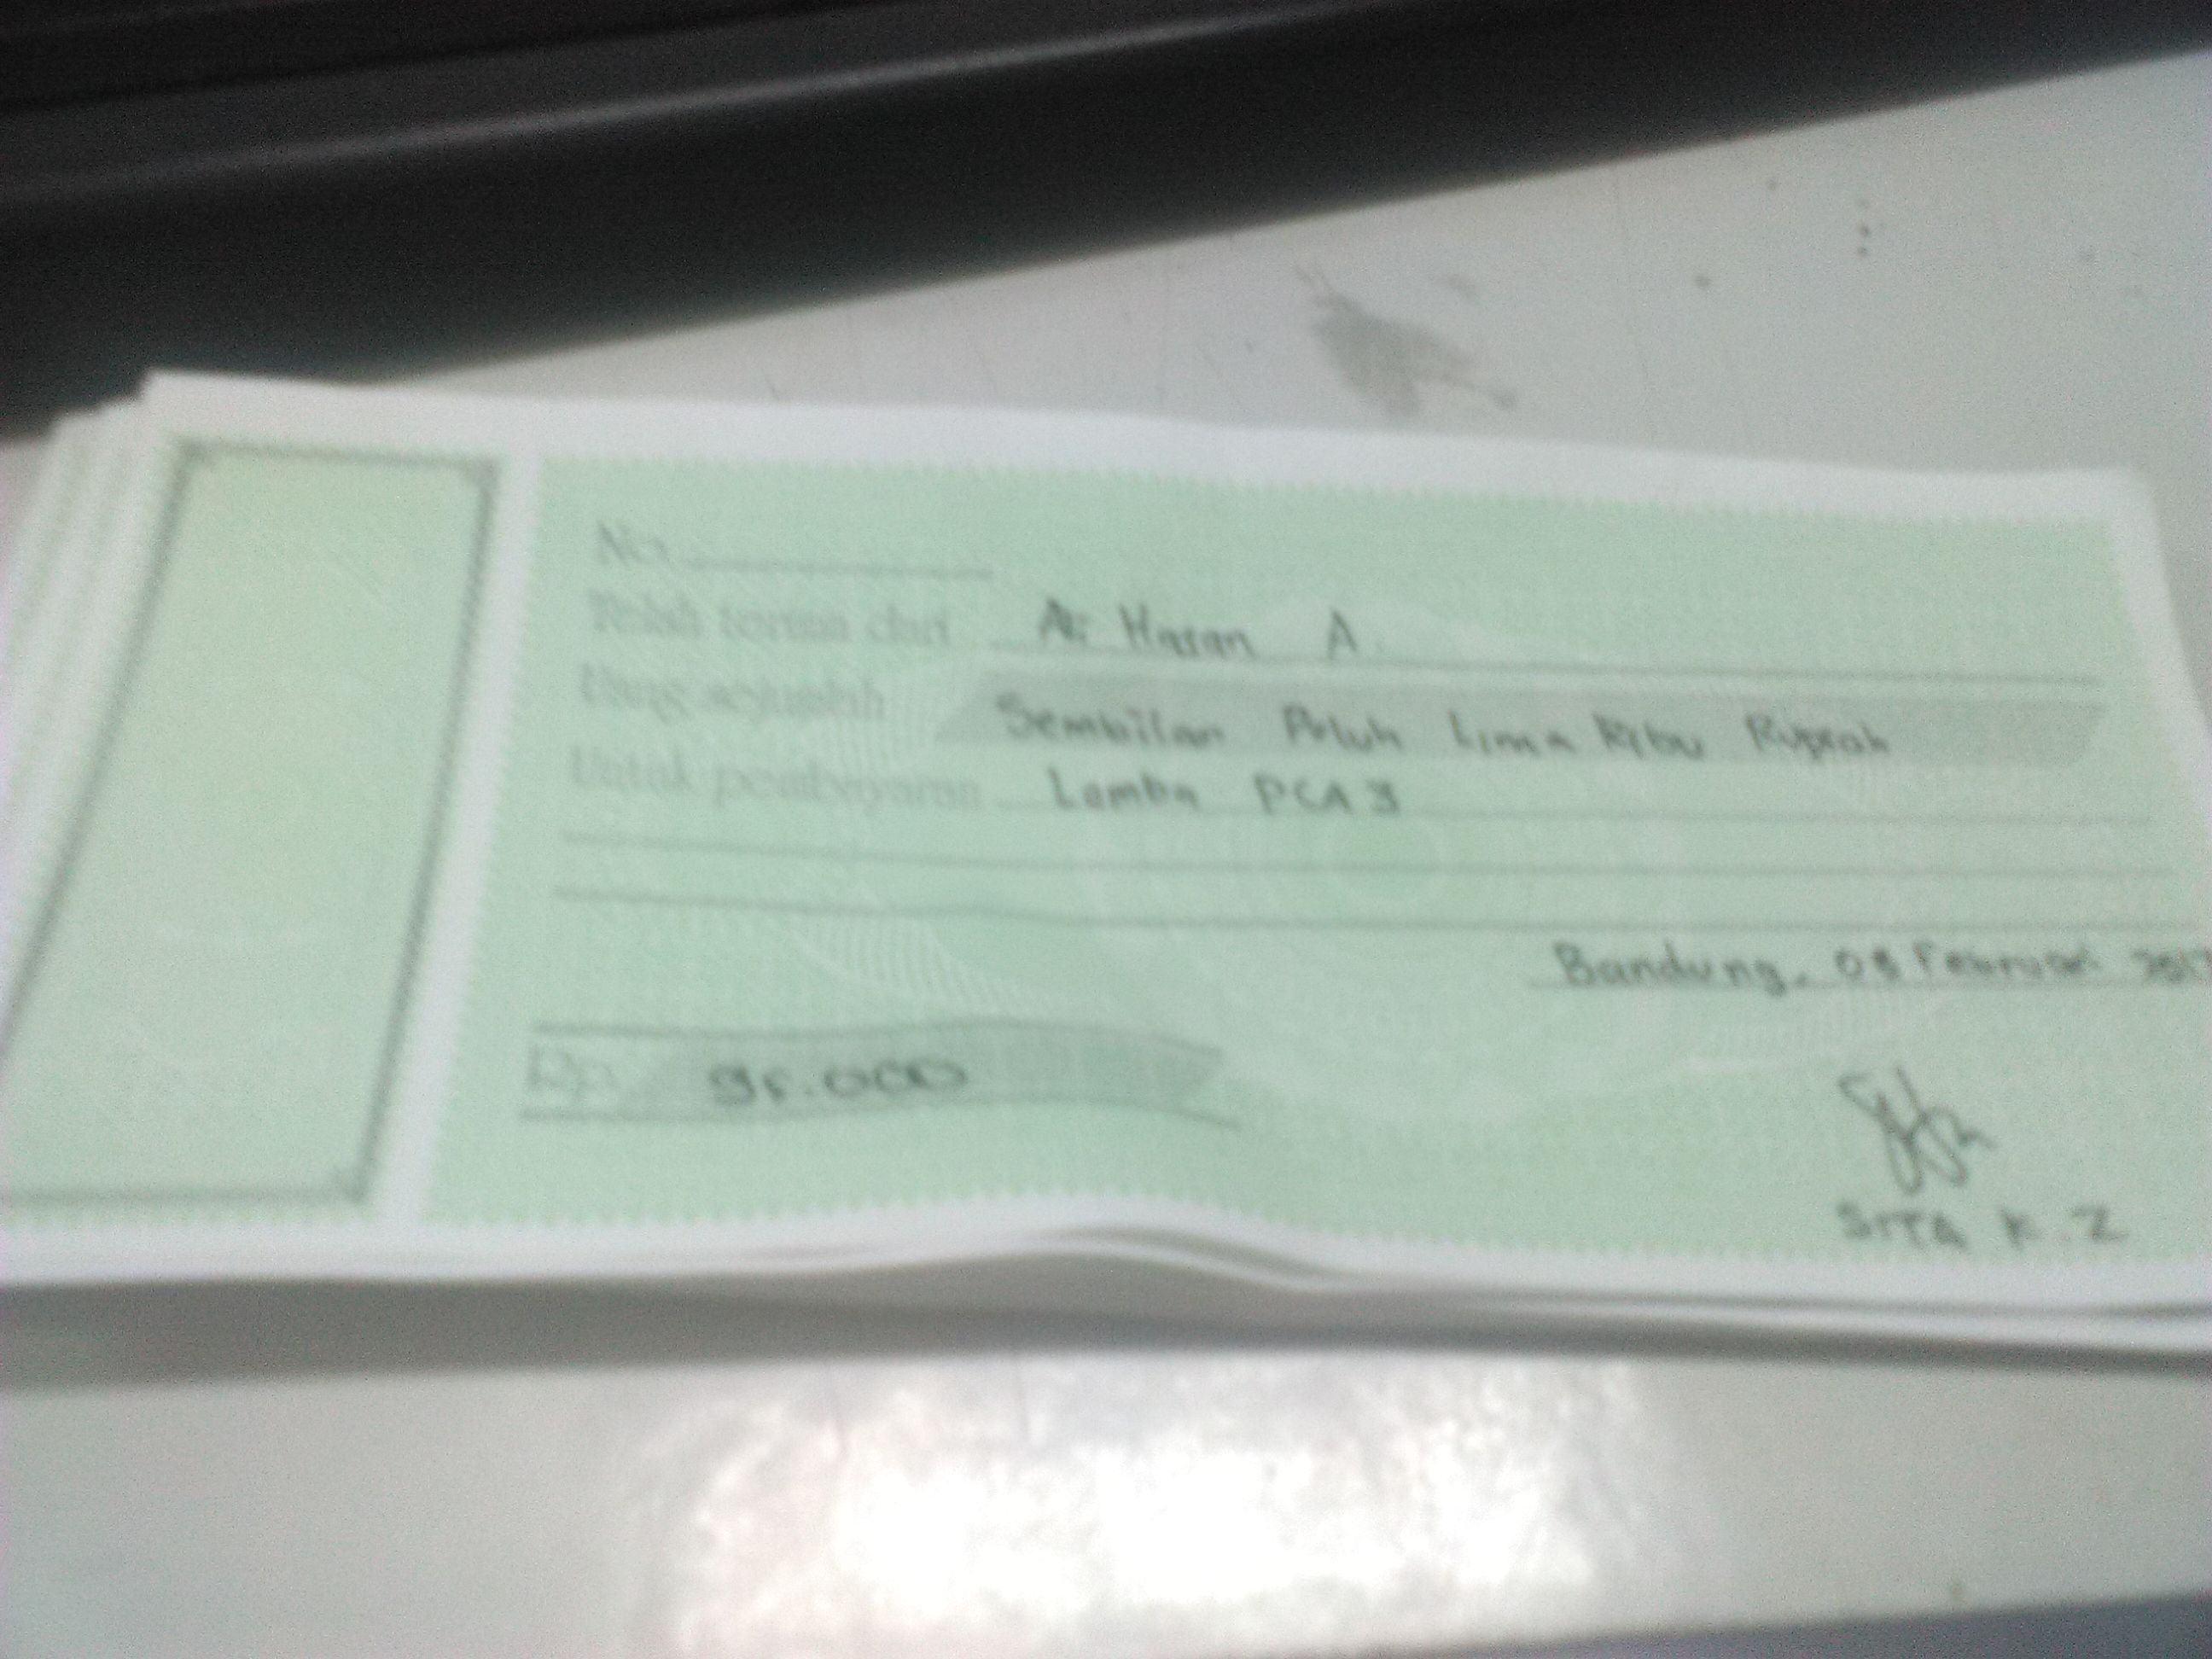 No.
Telah terima dari Ali Hasan A.
Uang sejumlah Sembilan Puluh Lima Ribu Rupiah
Untuk pembayaran Lomba PCA
Bandung, Februari
Rp. 95.000
SITA K. Z